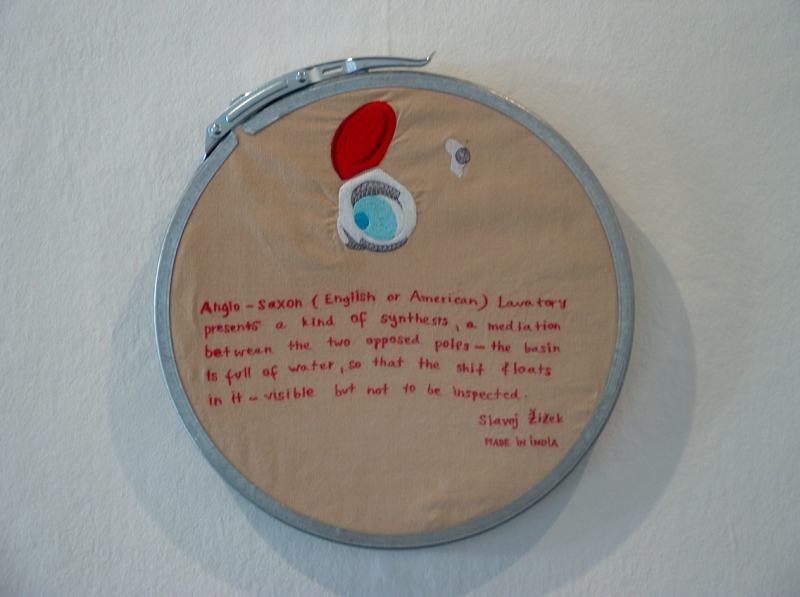 Anglo - Saxon ( English or American ) Lavatory
presents a kind of synthesis, a mediation
between the two opposed poles - the basin
is full of water, so that the shit floats
in it - visible but not to be inspected.
Slavoj Žižek
MADE IN INDIA